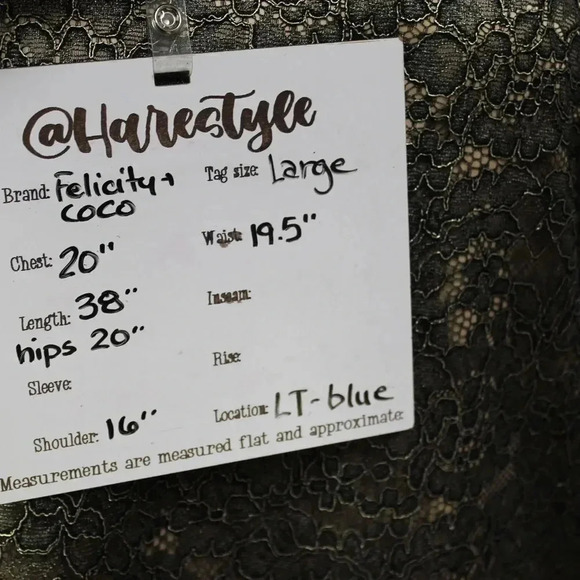 @Harestyle
Brand: Felicity + Tag size: Large
COCO
Chest: 20" Waist: 19.5"
Length: 38" Inseam:
hips 20"
Sleeve: Rise:
Shoulder: 16" Location: LT-blue
Measurements are measured flat and approximate